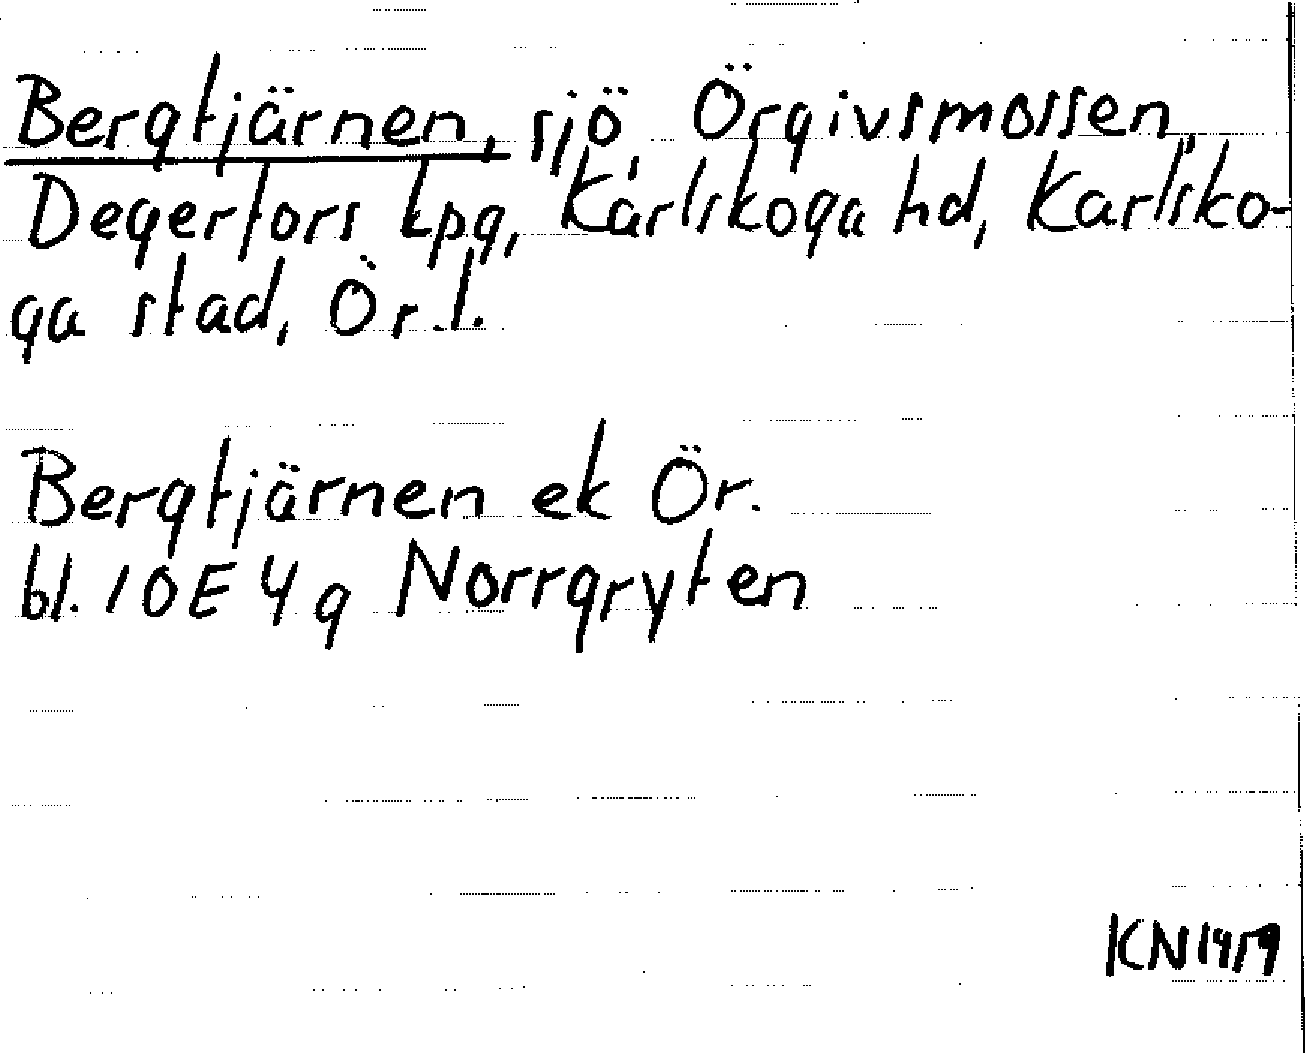 Bergtjärnen, sjö, Örgivsmossen,
Degerfors kpg, Karlskoga hd, Karlsko-
ga stad, Ör.l.
Bergtjärnen ek Ör.
bl. 10E 4g Norrgryten